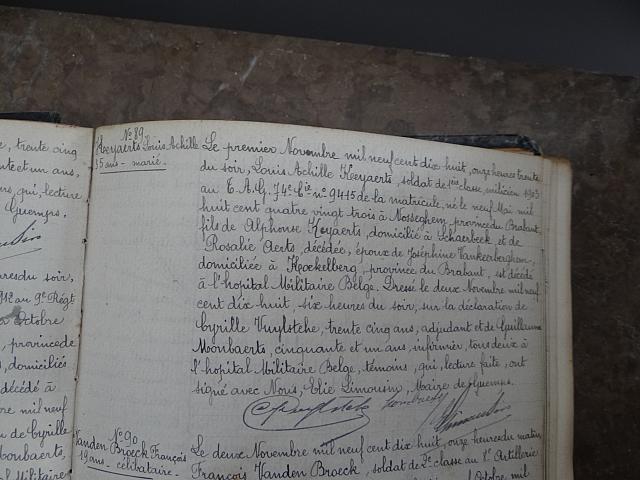 e, trente cinq
nte et un ans,
ns, qui, lecture
Guemps.
res du soir,
912 au 9e Régt
Octobre
, province de
s, domiciliés
décédé à
re mil neuf
de Cyrille
Monbaerts,
al Militaire
No 89
Keyaerts Louis Achille
35 ans - marié.
Le premier Novembre mil neuf cent dix huit, onze heures trente
du soir, Louis Achille Keyaerts, soldat de 1ère classe, milicien 1903
au C.A.G. 74e Cie no 9415 de la matricule, né le neuf Mai mil
huit cent quatre vingt trois à Nosseghem, province du Brabant,
fils de Alphonse Keyaerts, domicilié à Schaerbeek et de
Rosalie Aerts, décédée, époux de Joséphine Vankerberghem,
domiciliée à Koekelberg, province du Brabant, est décédé
à l'hôpital Militaire Belge. Dressé le deux Novembre mil neuf
cent dix huit, six heures du soir, sur la déclaration de
Cyrille Vuylsteke, trente cinq ans, adjudant et de Guillaume
Monbaerts, cinquante et un ans, infirmier, tous deux à
l'hôpital Militaire Belge, témoins, qui, lecture faite, ont
signé avec Nous, Elie Limousin, Maire de Guemps.
No 90
Vanden Broeck François
19 ans - célibataire -
Le deux Novembre mil neuf cent dix huit, onze heures du matin,
François Vanden Broeck, soldat de 2e classe au 1er Artillerie
Octobre mil